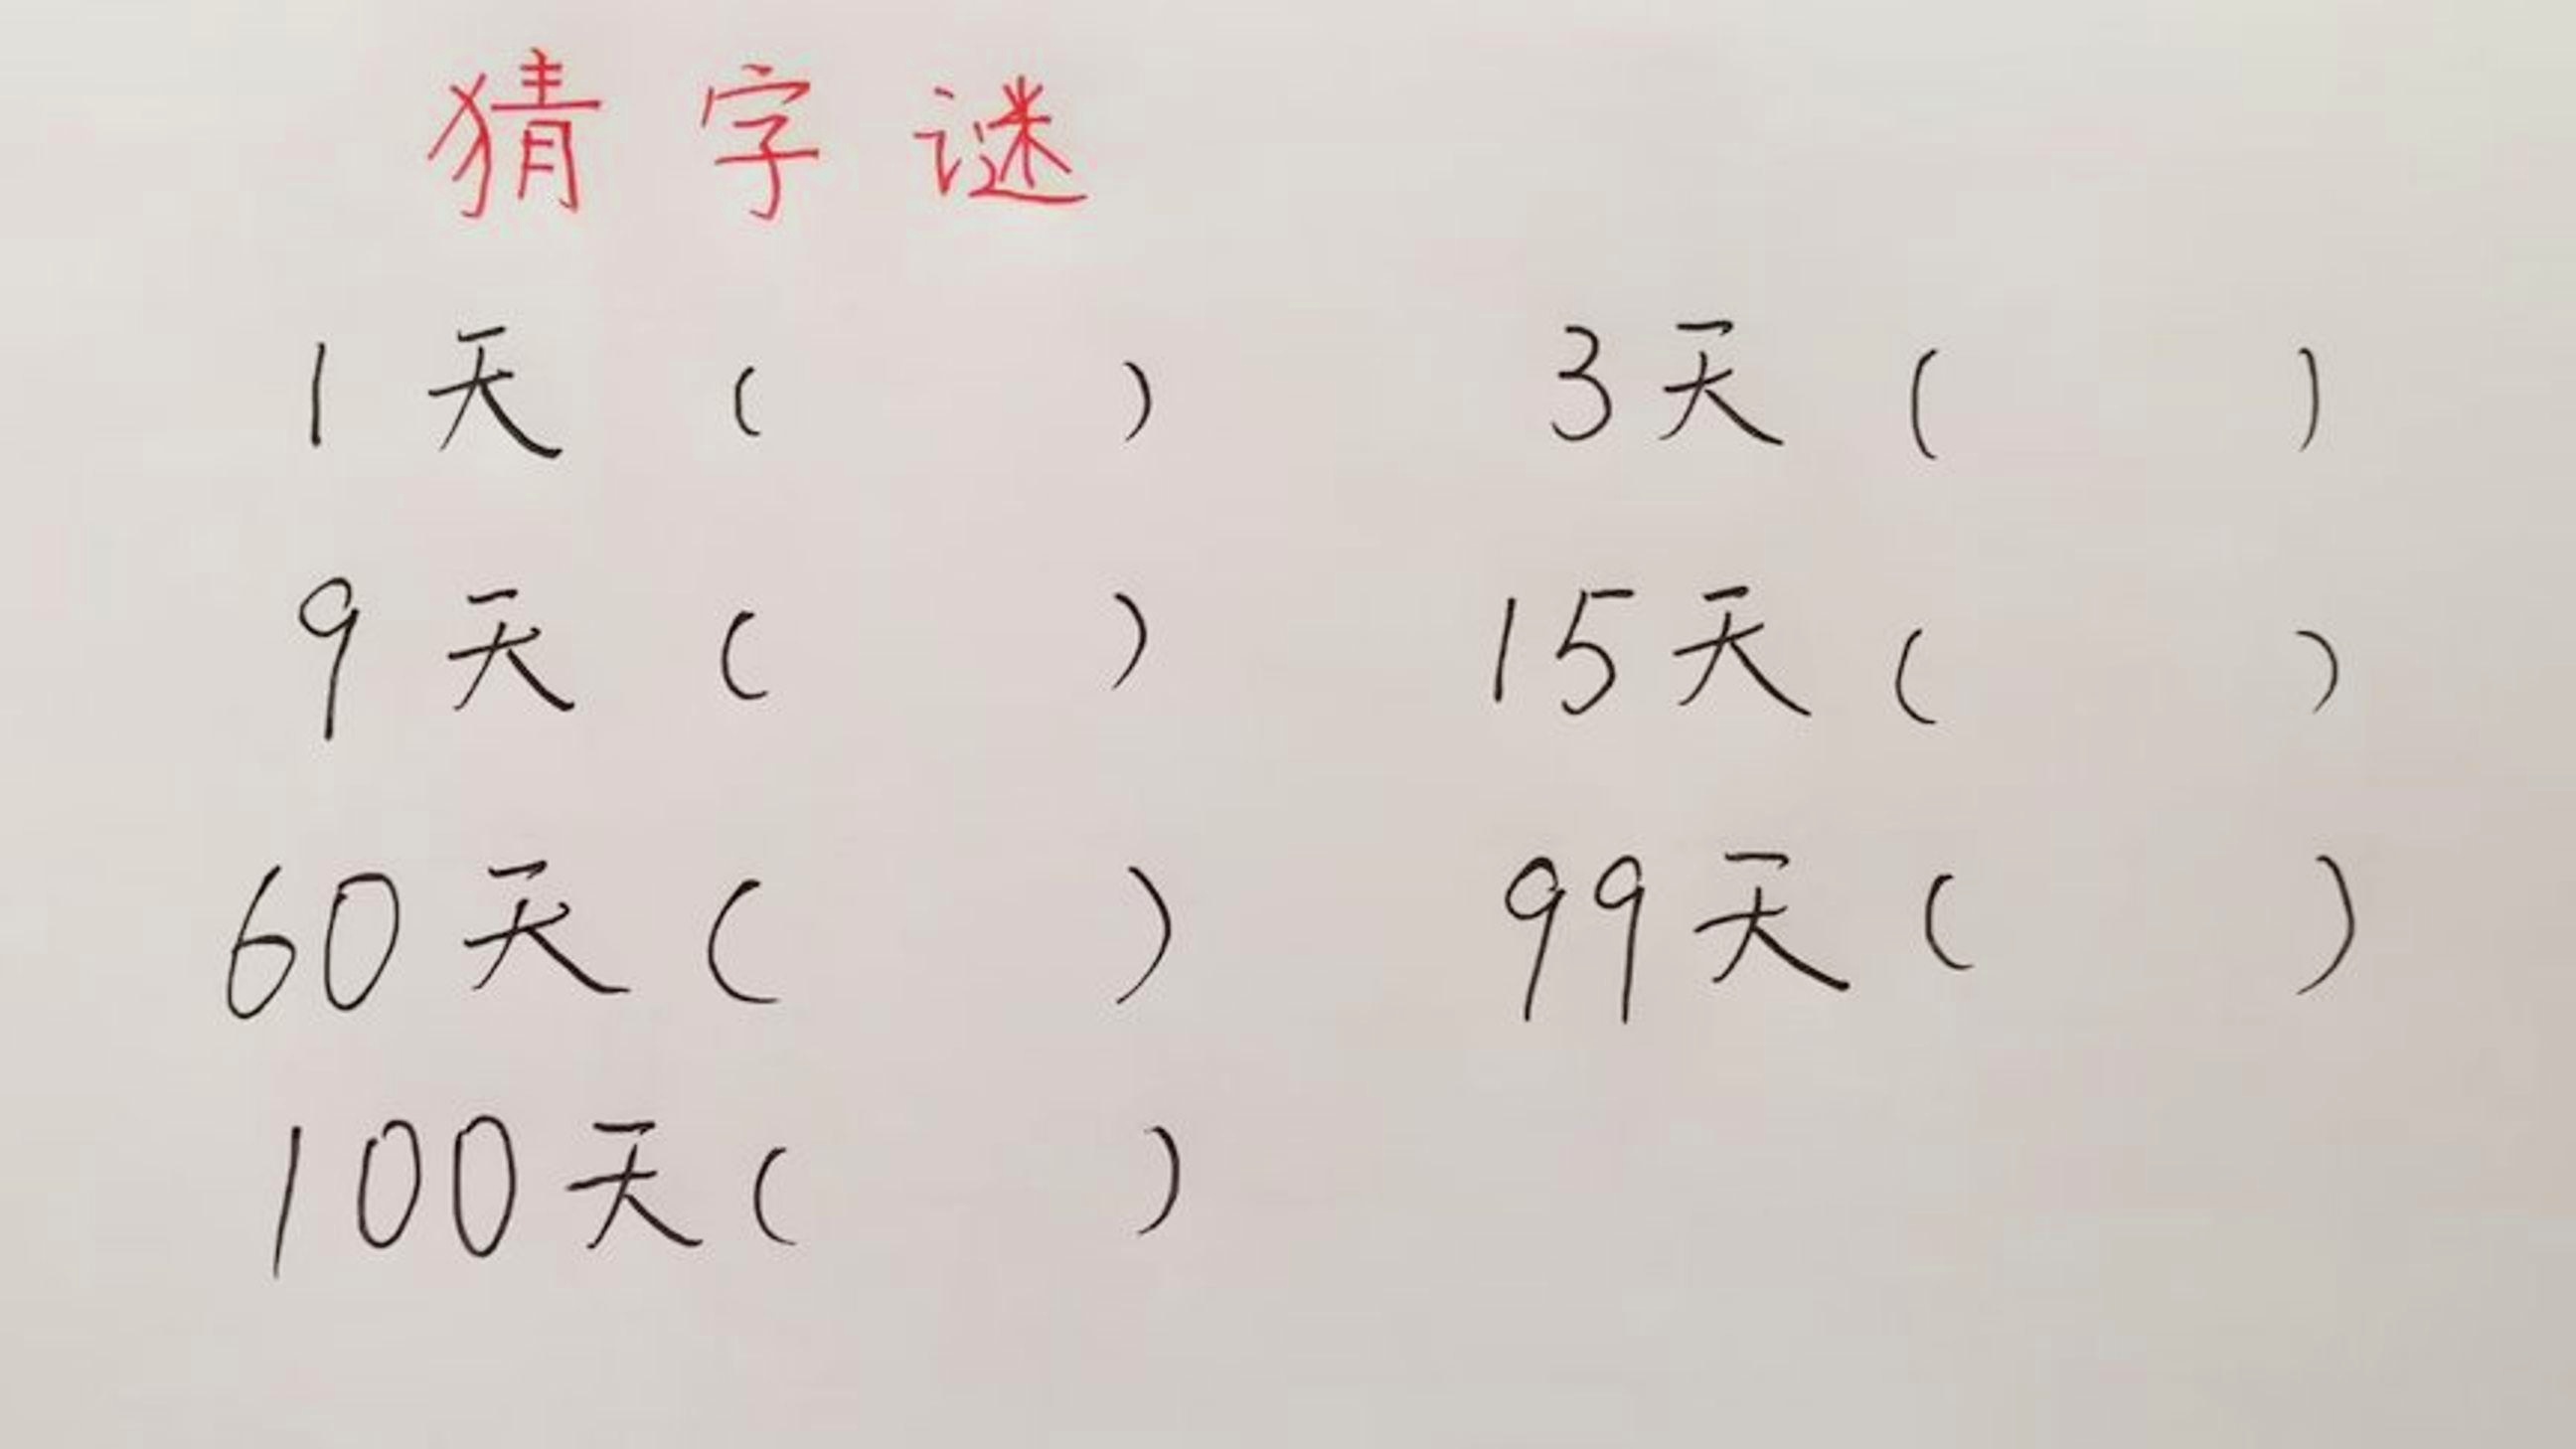 猜字谜
1天（ ） 3天（ ）
9天（ ） 15天（ ）
60天（ ） 99天（ ）
100天（ ）